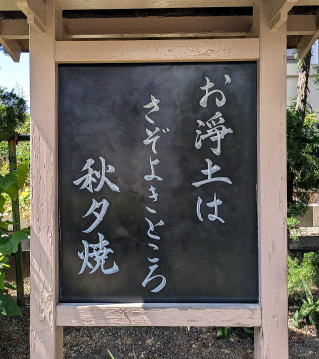 お淨土は
さぞよきところ
秋夕焼